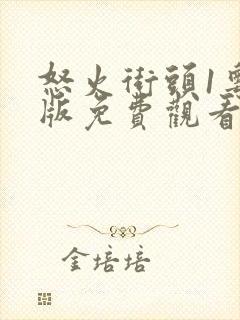 怒火街頭1
版免費觀看
金培培